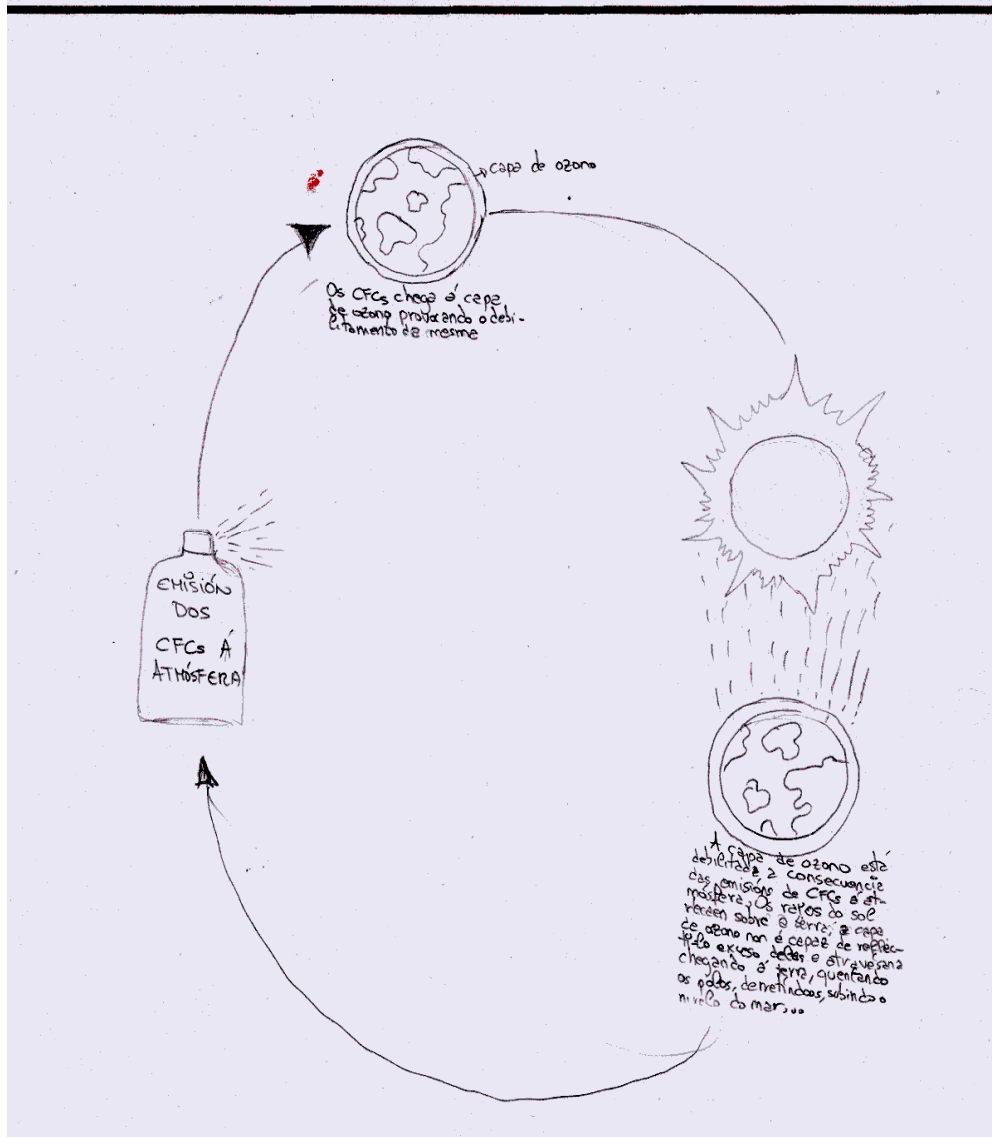 capa de ozono
Os CFCs chega á capa
de ozono provocando o debi-
litamento da mesme
EMISIÓN
DOS
CFCs Á
ATMÓSFERA
A capa de ozono está
debilitada a consecuencia
das emisións de CFCs á at-
mósfera. Os raios do sol
recaen sobre a terra, a capa
de ozono non é capaz de reflec-
exceso deles e atravesana
chegando á terra, quentando
os polos, derretíndoos, subindo o
nivel do mar...